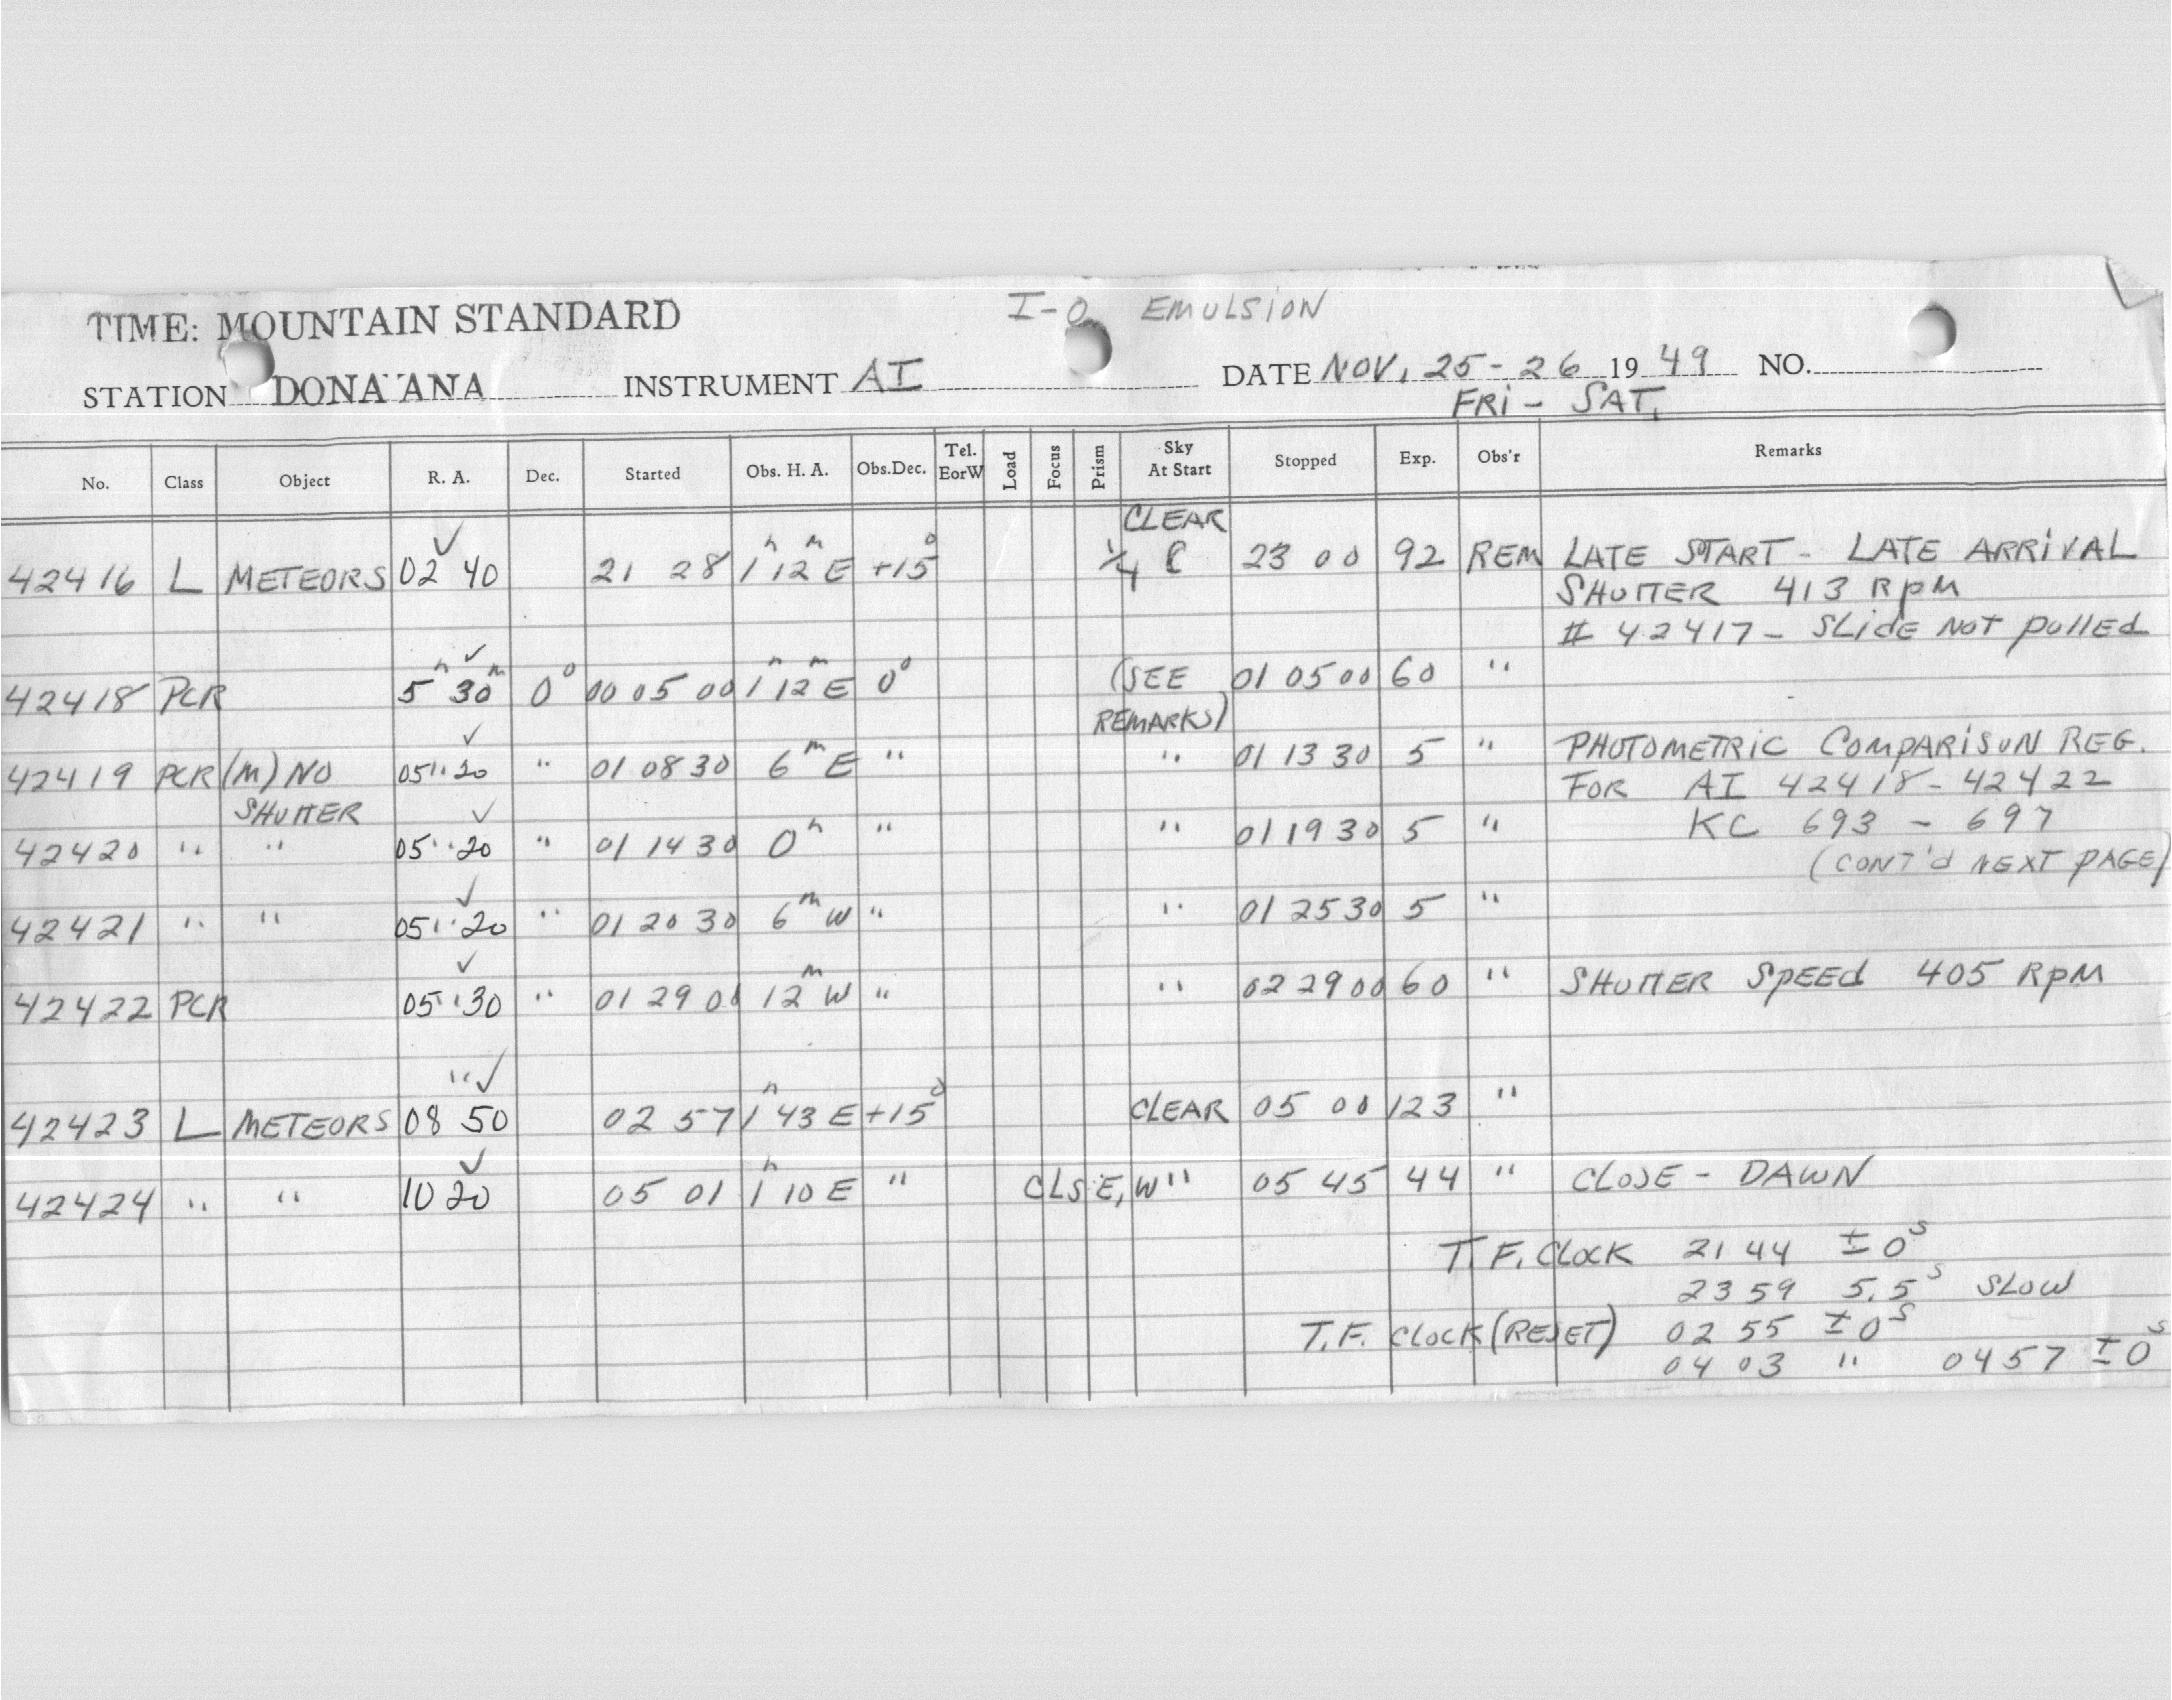 I-O EMULSION
TIME: MOUNTAIN STANDARD
STATION DONA ANA INSTRUMENT AI DATE NOV. 25-26 19 49 NO.
FRI - SAT.
No. Class Object R. A. Dec. Started Obs. H. A. Obs.Dec. Tel. EorW Load Focus Prism Sky At Start Stopped Exp. Obs'r Remarks
CLEAR
42416 L METEORS 02 40 21 28 1h 12m E +15° 1/4 23 00 92 REM LATE START - LATE ARRIVAL
SHUTTER 413 RPM
# 42417 - SLIDE NOT PULLED
42418 PCR 5h 30m 0° 00 05 00 1h 12m E 0° (SEE 01 05 00 60 "
REMARKS)
42419 PCR (M) NO 05 " 20 " 01 08 30 6m E " " 01 13 30 5 " PHOTOMETRIC COMPARISON REG.
SHUTTER FOR AI 42418 - 42422
42420 " " 05 " 20 " 01 14 30 0h " " 01 19 30 5 " KC 693 - 697
(CONT'd NEXT PAGE)
42421 " " 05 " 20 " 01 20 30 6m W " " 01 25 30 5 "
42422 PCR 05 " 30 " 01 29 00 12m W " " 02 29 00 60 " SHUTTER SPEED 405 RPM
"
42423 L METEORS 08 50 02 57 1h 43 E +15° CLEAR 05 00 123 "
42424 " " 10 20 05 01 1h 10 E " CLS E, W " 05 45 44 " CLOSE - DAWN
T.F. CLOCK 21 44 ±0s
23 59 5.5s SLOW
T.F. CLOCK (RESET) 02 55 ±0s
04 03 " 04 57 ±0s